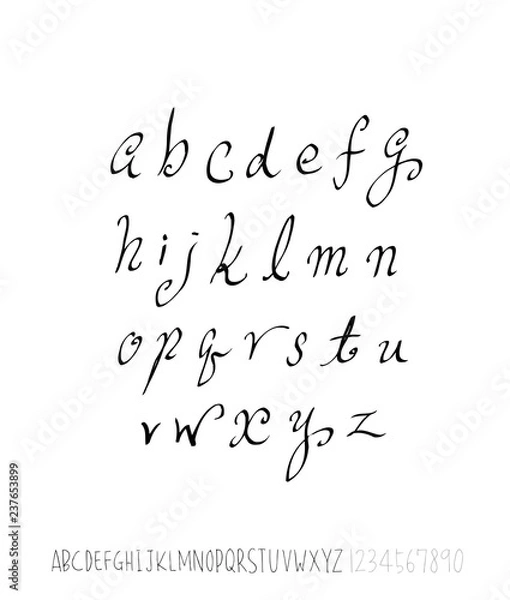 a b c d e f g
h i j k l m n
o p q r s t u
v w x y z
ABCDEFGHIJKLMNOPQRSTUVWXYZ 1234567890
Adobe Stock | #237653899